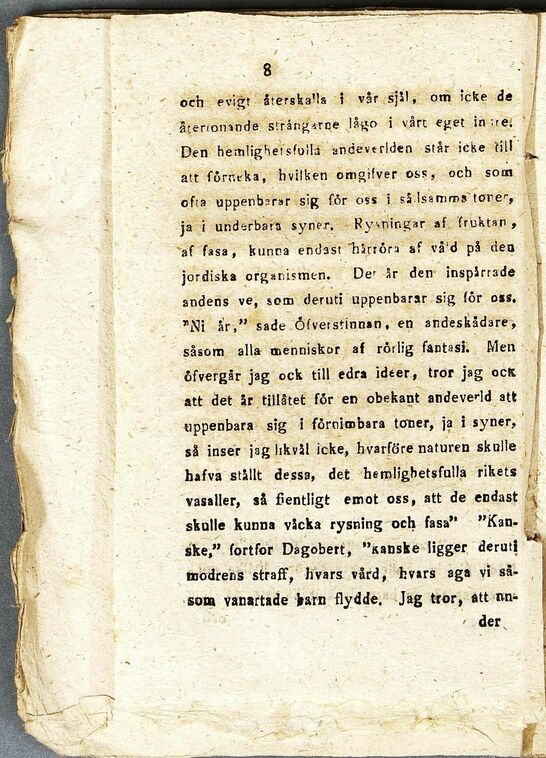 8
och evigt återskalla i vår själ, om icke de
återtonande strängarne lågo i vårt eget inre.
Den hemlighetsfulla andeverlden står icke till
att förneka, hvilken omgifver oss, och som
ofta uppenbarar sig för oss i sällsamma toner,
ja i underbara syner. Rysningar af fruktan,
af fasa, kunna endast härröra af våld på den
jordiska organismen. Det är den inspärrade
andens ve, som deruti uppenbarar sig för oss.
"Ni är," sade Öfverstinnan, en andeskådare,
såsom alla menniskor af rörlig fantasi. Men
öfvergår jag ock till edra ideer, tror jag ock
att det är tillåtet för en obekant andeverld att
uppenbara sig i förnimbara toner, ja i syner,
så inser jag likväl icke, hvarföre naturen skulle
hafva ställt dessa, det hemlighetsfulla rikets
vasaller, så fientligt emot oss, att de endast
skulle kunna väcka rysning och fasa" "Kan-
ske," fortfor Dagobert, "kanske ligger deruti
modrens straff, hvars vård, hvars aga vi så-
som vanartade barn flydde. Jag tror, att un-
der